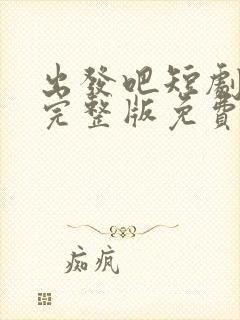 出發吧短劇
完整版免費
痴瘋